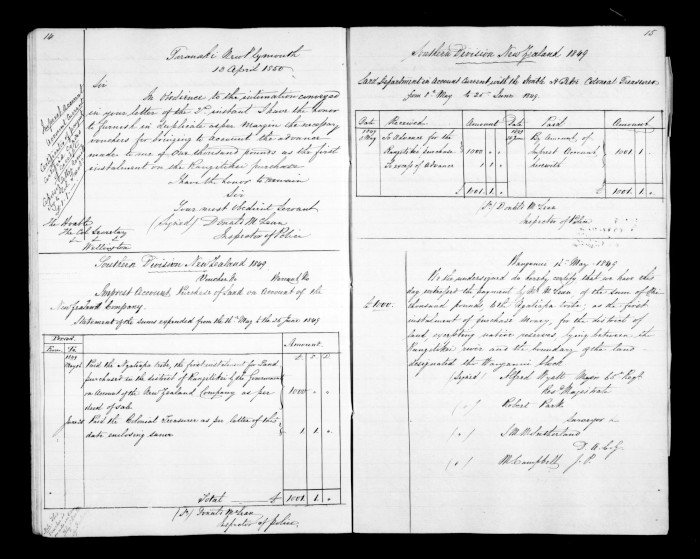 14
Taranaki New Plymouth
13 April 1850
Sir
In Obedience to the intimation conveyed
in your letter of the 2nd instant I have the honor
to furnish in Duplicate as per Margin the necessary
vouchers for bringing to account the advance
made to me of One thousand pounds as the first
instalment on the Rangitikei purchase
I have the honor to remain
Sir
Your most obedient Servant
(Signed) Donald McLean
Inspector of Police
The Honble
The Col. Secretary
Wellington
Imprest Account
Account Current
Southern Division New Zealand 1849
Voucher No Warrant No
Imprest Account, Purchase of Land on Account of the
New Zealand Company.
Statement of the sums expended from the 15th May to the 25 June 1849
Period Amount
From To
1849
May 15 Paid the Ngatiapa tribe, the first instalment for Land
purchased in the district of Rangitikei by the Government
on Account of the New Zealand Company as per
deed of sale 1000
June 25 Paid the Colonial Treasurer as per letter of this
date enclosing same 1 1 "
Total £ 1001 1 "
(Sd) Donald McLean
Inspector of police
15
Southern Division New Zealand 1849
Land Department in Account Current with the Honble H. Petre Colonial Treasurer
from 5th May to 25th June 1849
Date Received Amount Date Paid Amount
1849 1849
5 May To Advance for the 1000 " " 25 June By Amount of 1001 1 "
Rangitikei purchase Imprest Account,
To excess of Advance 1 1 " herewith
£ 1001 1 " £ 1001 1 "
(Sd) Donald McLean
Inspector of Police
Wanganui 15th May 1849
We the undersigned do hereby certify that we have this
day witnessed the payment by Mr McLean of the sum of One
£1000. thousand pounds to the Ngatiapa tribe, as the first
instalment of purchase Money, for the district of
land, excepting native reserves, lying between the
Rangitikei river and the boundary of the land
designated the Wanganui block
(Signed) Alfred Wyatt Major 65th Regt
Rest Magistrate
(") Robert Park
Surveyor
(") 
D. A. C. G.
(") M. Campbell J. P.